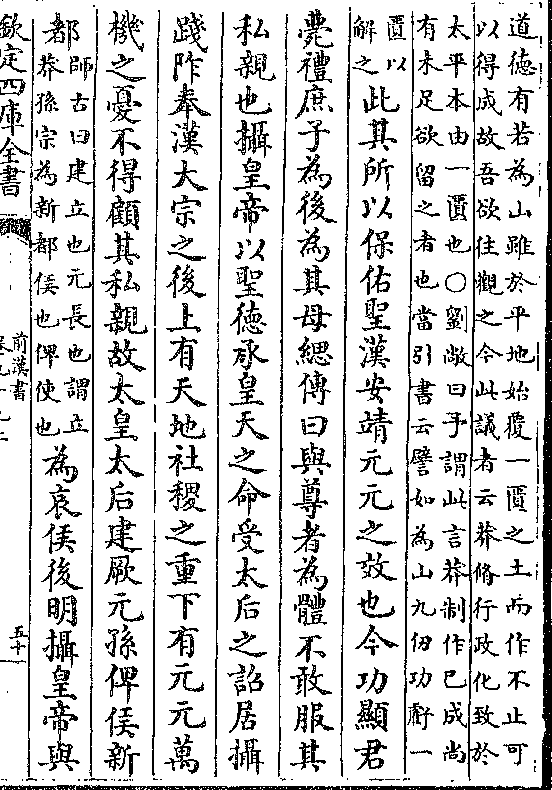 道徳有若為山雖於平地始覆一匱之土而作不止可
以得成故吾欲往觀之今此議者云莽脩行政化致於
太平本由一匱也○劉敞曰予謂此言莽制作已成尚
有未足欲留之者也當引書云譬如為山九仞功虧一
匱以
解之
此其所以保佑聖漢安靖元元之效也今功顯君
薨禮庶子為後為其母緦傳曰與尊者為體不敢服其
私親也攝皇帝以聖徳承皇天之命受太后之詔居攝
踐阼奉漢大宗之後上有天地社稷之重下有元元萬
機之憂不得顧其私親故太皇太后建厥元孫俾侯新
都
師古曰建立也元長也謂立
莽孫宗為新都侯也俾使也
為哀侯後明攝皇帝與
欽定四庫全書
前漢書
五十